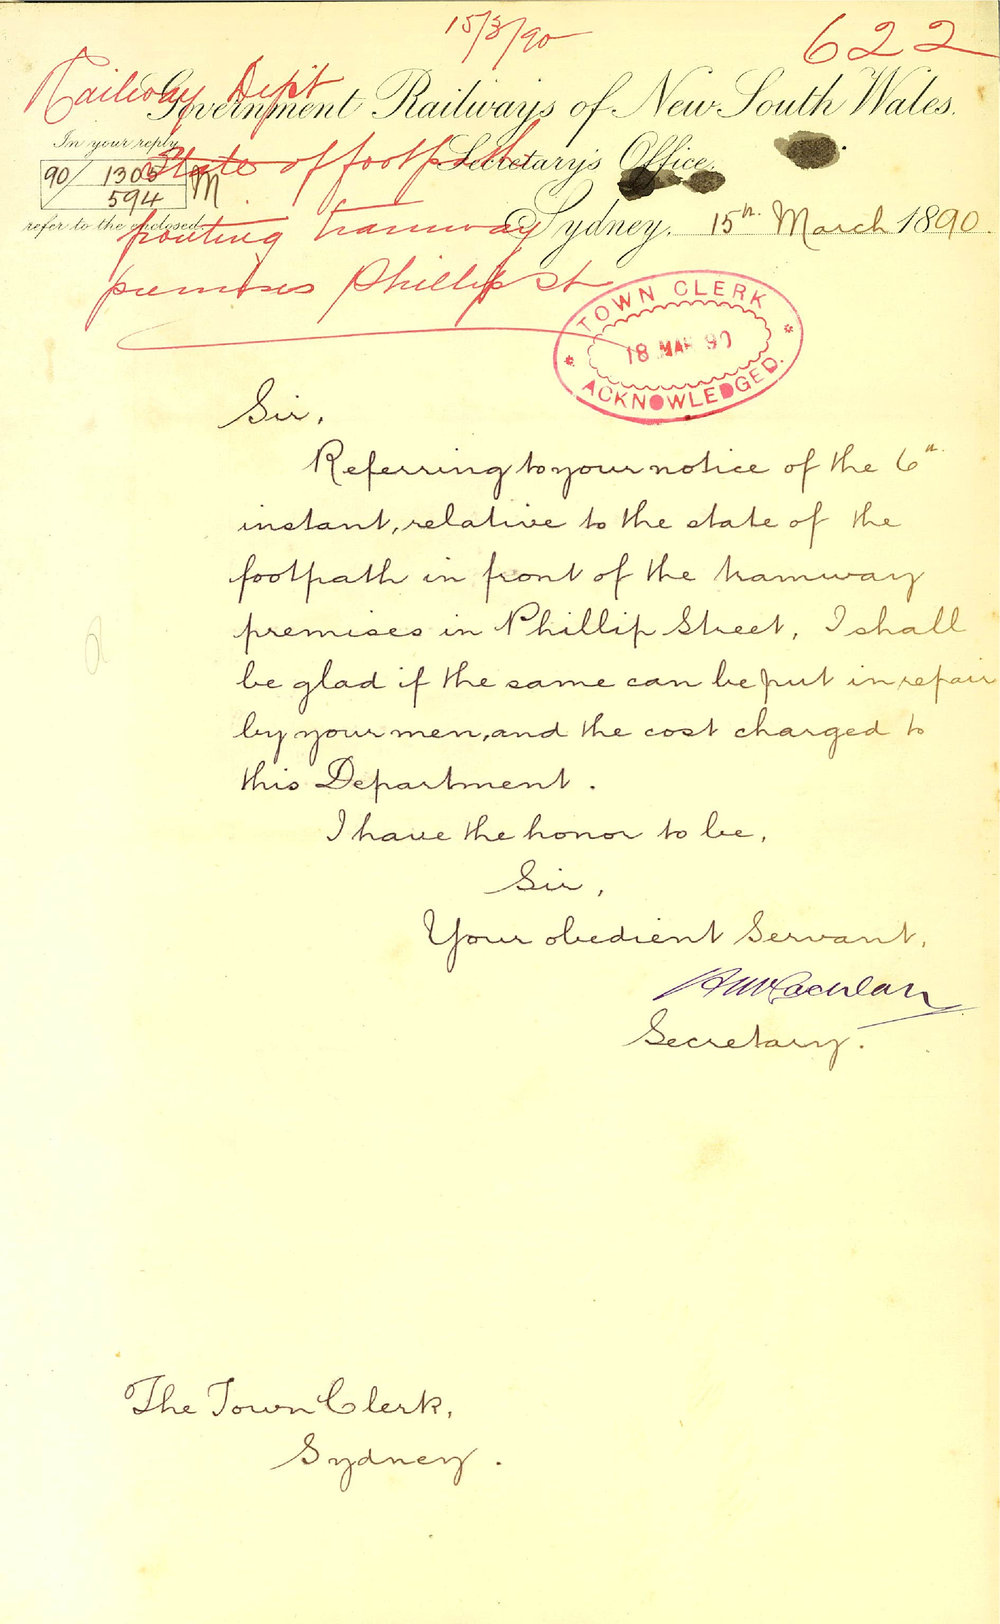 15/3/90
622
Railway Dept
Government Railways of New South Wales.
In your reply
State of footpath
Secretary's Office,
90/1303 M
594
refer to the enclosed.
fronting tramway
Sydney, 15th March 1890.
premises Phillip St
TOWN CLERK
18 MAR 90
ACKNOWLEDGED.
Sir,
Referring to your notice of the 6th
instant, relative to the state of the
footpath in front of the tramway
premises in Phillip Street, I shall
be glad if the same can be put in repair
by your men, and the cost charged to
this Department.
I have the honor to be,
Sir,
Your obedient Servant,
H McLachlan
Secretary.
The Town Clerk,
Sydney.